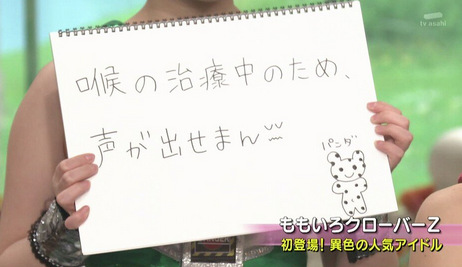 tv asahi
喉の治療中のため、
声が出せまん
パンダ
ももいろクローバーZ
初登場!異色の人気アイドル